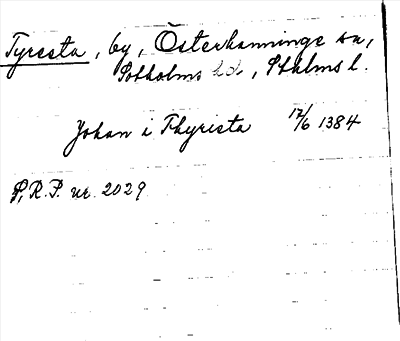 Tyresta, by, Österhanninge sn,
Sotholms hd, Sthlms l.
Johan i Thyrista 17/6 1384
S.R.P. nr. 2029